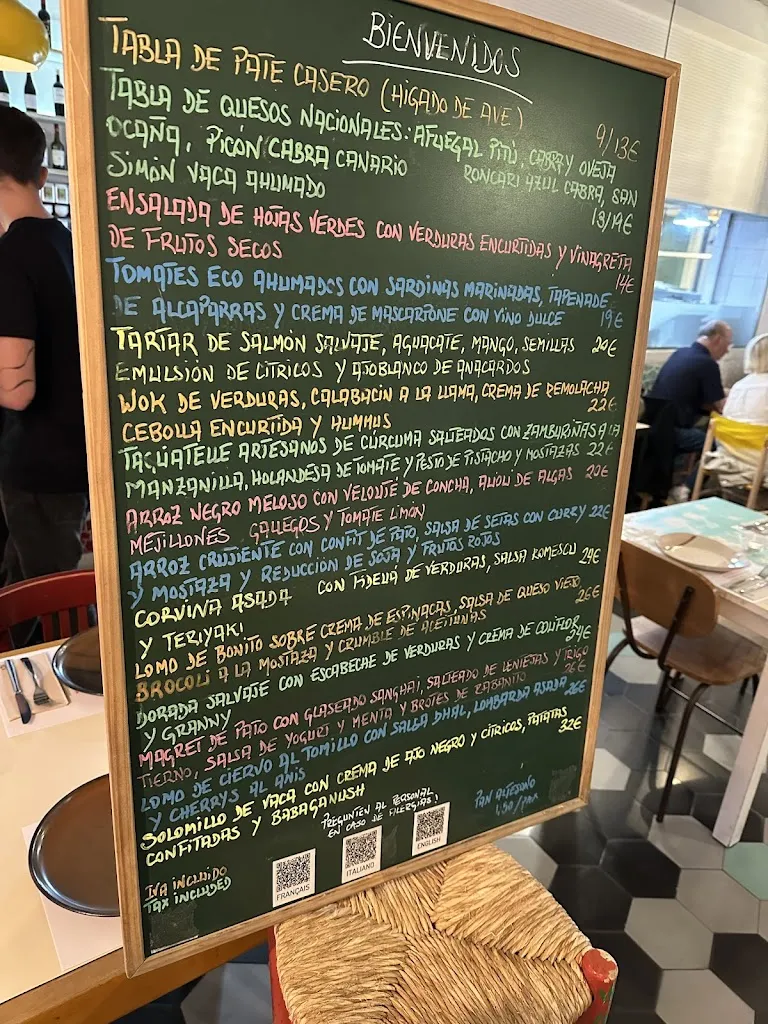 BIENVENIDOS
TABLA DE PATE CASERO (HIGADO DE AVE) 9/13€
TABLA DE QUESOS NACIONALES: AFUEGAL PITU, CABRA Y OVEJA
OCAÑA, PICÓN CABRA CANARIO RONCARI AZUL CABRA, SAN
SIMÓN VACA AHUMADO 13/19€
ENSALADA DE HOJAS VERDES CON VERDURAS ENCURTIDAS Y VINAGRETA
DE FRUTOS SECOS 14€
TOMATES ECO AHUMADOS CON SARDINAS MARINADAS, TAPENADE
DE ALCAPARRAS Y CREMA DE MASCARPONE CON VINO DULCE 19€
TARTAR DE SALMÓN SALVAJE, AGUACATE, MANGO, SEMILLAS 20€
EMULSIÓN DE CÍTRICOS Y AJOBLANCO DE ANACARDOS
WOK DE VERDURAS, CALABACÍN A LA LLAMA, CREMA DE REMOLACHA
CEBOLLA ENCURTIDA Y HUMMUS 22€
TAGLIATELLE ARTESANOS DE CÚRCUMA SALTEADOS CON ZAMBURIÑAS A LA
MANZANILLA, HOLANDESA DE TOMATE Y PESTO DE PISTACHO Y MOSTAZAS 22€
ARROZ NEGRO MELOSO CON VELOUTÉ DE CONCHA, ALIOLI DE ALGAS 20€
MEJILLONES GALLEGOS Y TOMATE LIMÓN
ARROZ CRUJIENTE CON CONFIT DE PATO, SALSA DE SETAS CON CURRY 22€
Y MOSTAZA Y REDUCCIÓN DE SOJA Y FRUTOS ROJOS
CORVINA ASADA CON FIDEUÁ DE VERDURAS, SALSA ROMESCU 24€
Y TERIYAKI
LOMO DE BONITO SOBRE CREMA DE ESPINACAS, SALSA DE QUESO VIEJO
BROCOLI A LA MOSTAZA Y CRUMBLE DE ACEITUNAS 26€
DORADA SALVAJE CON ESCABECHE DE VERDURAS Y CREMA DE COLIFLOR
Y GRANNY 24€
MAGRET DE PATO CON GLASEADO SANGHAI, SALTEADO DE LENTEJAS Y TRIGO
TIERNO, SALSA DE YOGURT Y MENTA Y BROTES DE RABANITO 26€
LOMO DE CIERVO AL TOMILLO CON SALSA DHAL, LOMBARDA ASADA 26€
Y CHERRYS AL ANIS
SOLOMILLO DE VACA CON CREMA DE AJO NEGRO Y CÍTRICOS, PATATAS
CONFITADAS Y BABAGANUSH 32€
PREGUNTEN AL PERSONAL
EN CASO DE ALERGIAS!
PAN ARTESANO
1,50/PAX
IVA INCLUIDO
TAX INCLUDED
FRANÇAIS
ITALIANO
ENGLISH